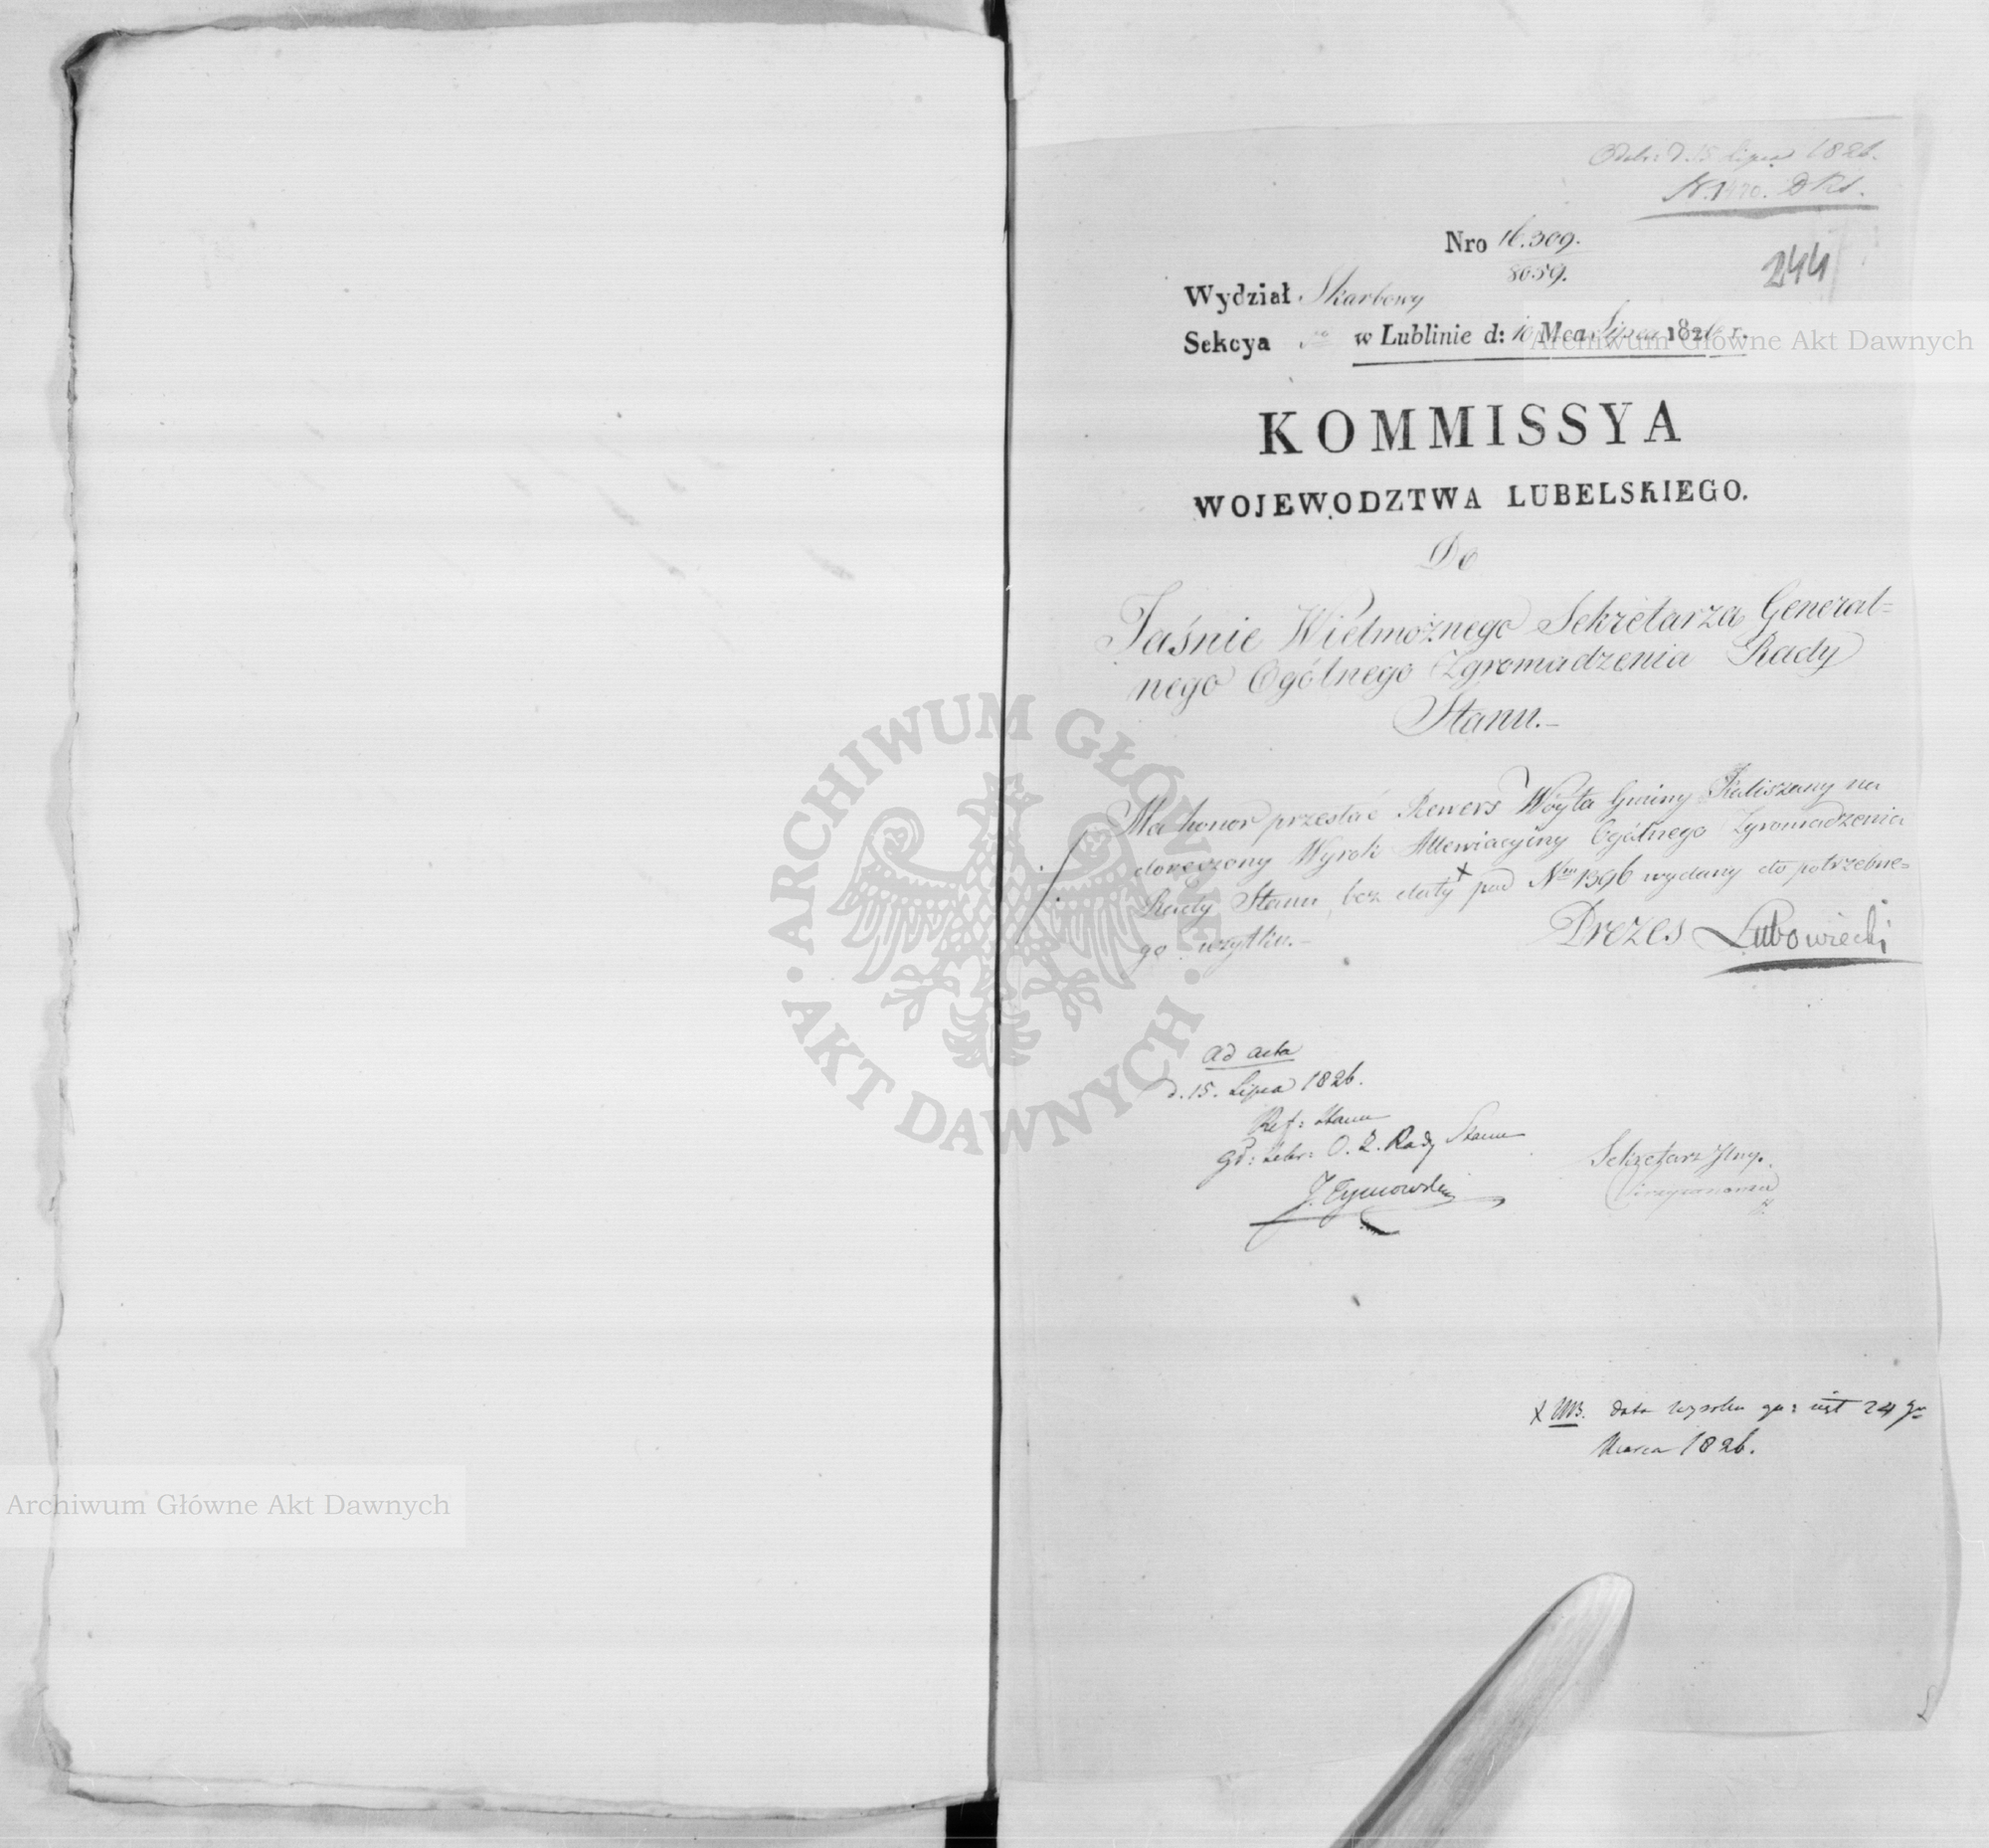 Odebr: d. 15 Lipca 1826.
N. 1470.
Nro 16.309.
8059.
244
Wydział Skarbowy
Sekcya w Lublinie d: 10 Mca Lipca 1826 r.
Archiwum Główne Akt Dawnych
KOMMISSYA
WOJEWODZTWA LUBELSKIEGO.
Do
Jaśnie Wielmożnego Sekretarza General=
nego Ogólnego Zgromadzenia Rady
Stanu.-
Ma honor przesłać Rewers Woyta Gminy Kaliszany na
doręczony Wyrok Allewiacyiny Ogólnego Zgromadzenia
Rady Stanu, bez daty x pod Nrem 1396 wydany do potrzebne=
go użytku.-
Prezes Lubowiecki
ad acta
d. 15. Lipca 1826.
Ref: Stanu
O. Z. Rady Stanu
J. Tymowski
Sekretarz Jlny.
x NB. data wyroku jest 24
Marca 1826.
ARCHIWUM GŁÓWNE
AKT DAWNYCH
Archiwum Główne Akt Dawnych